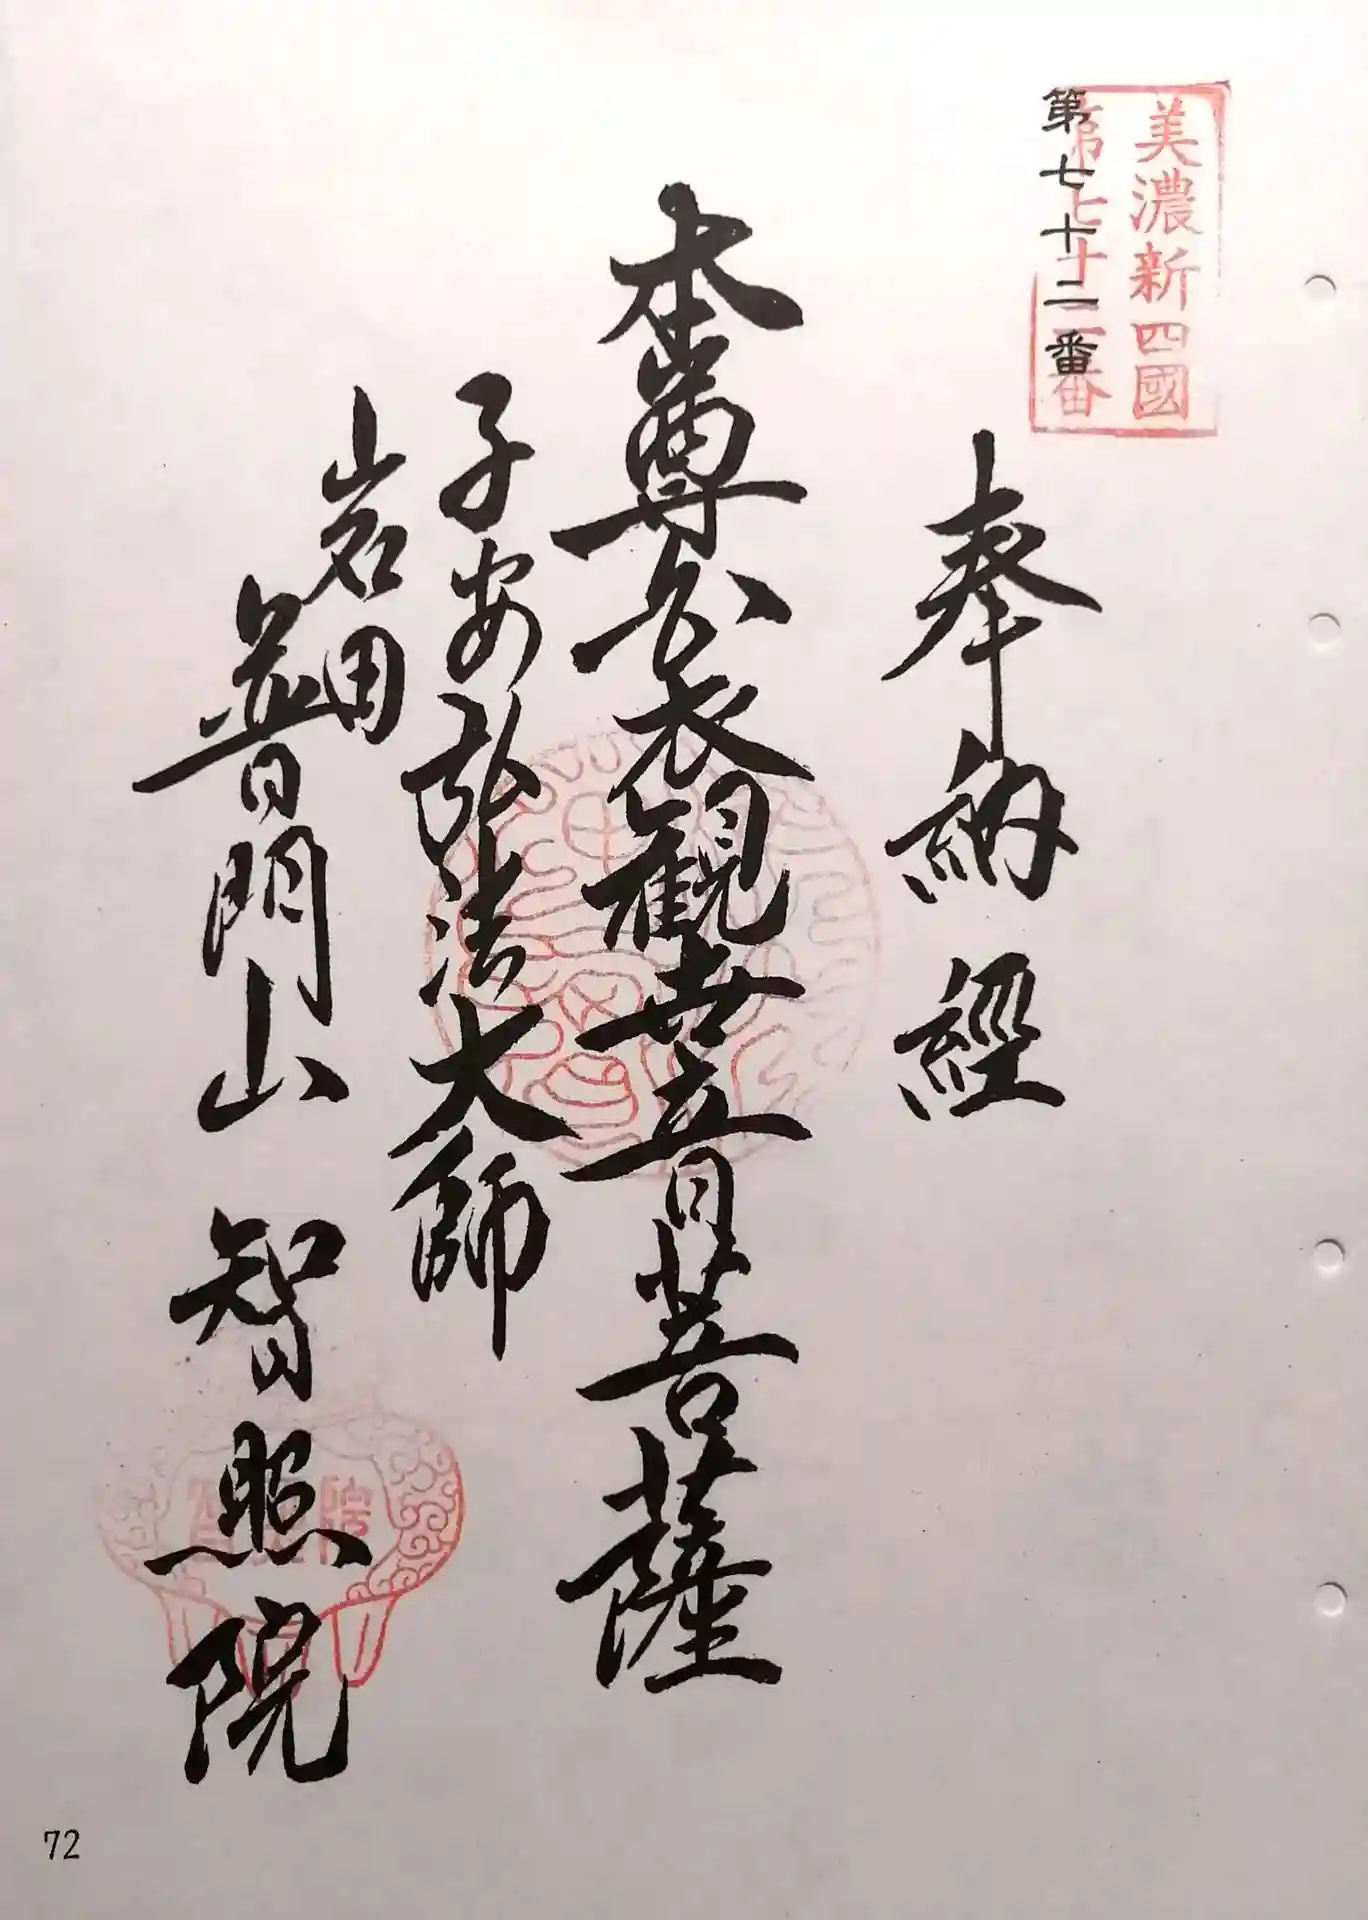 美濃新四國
第七十二番
第七十二番
奉納經
本尊白衣觀世音菩薩
子安弘法大師
岩田
普門山 智照院
72